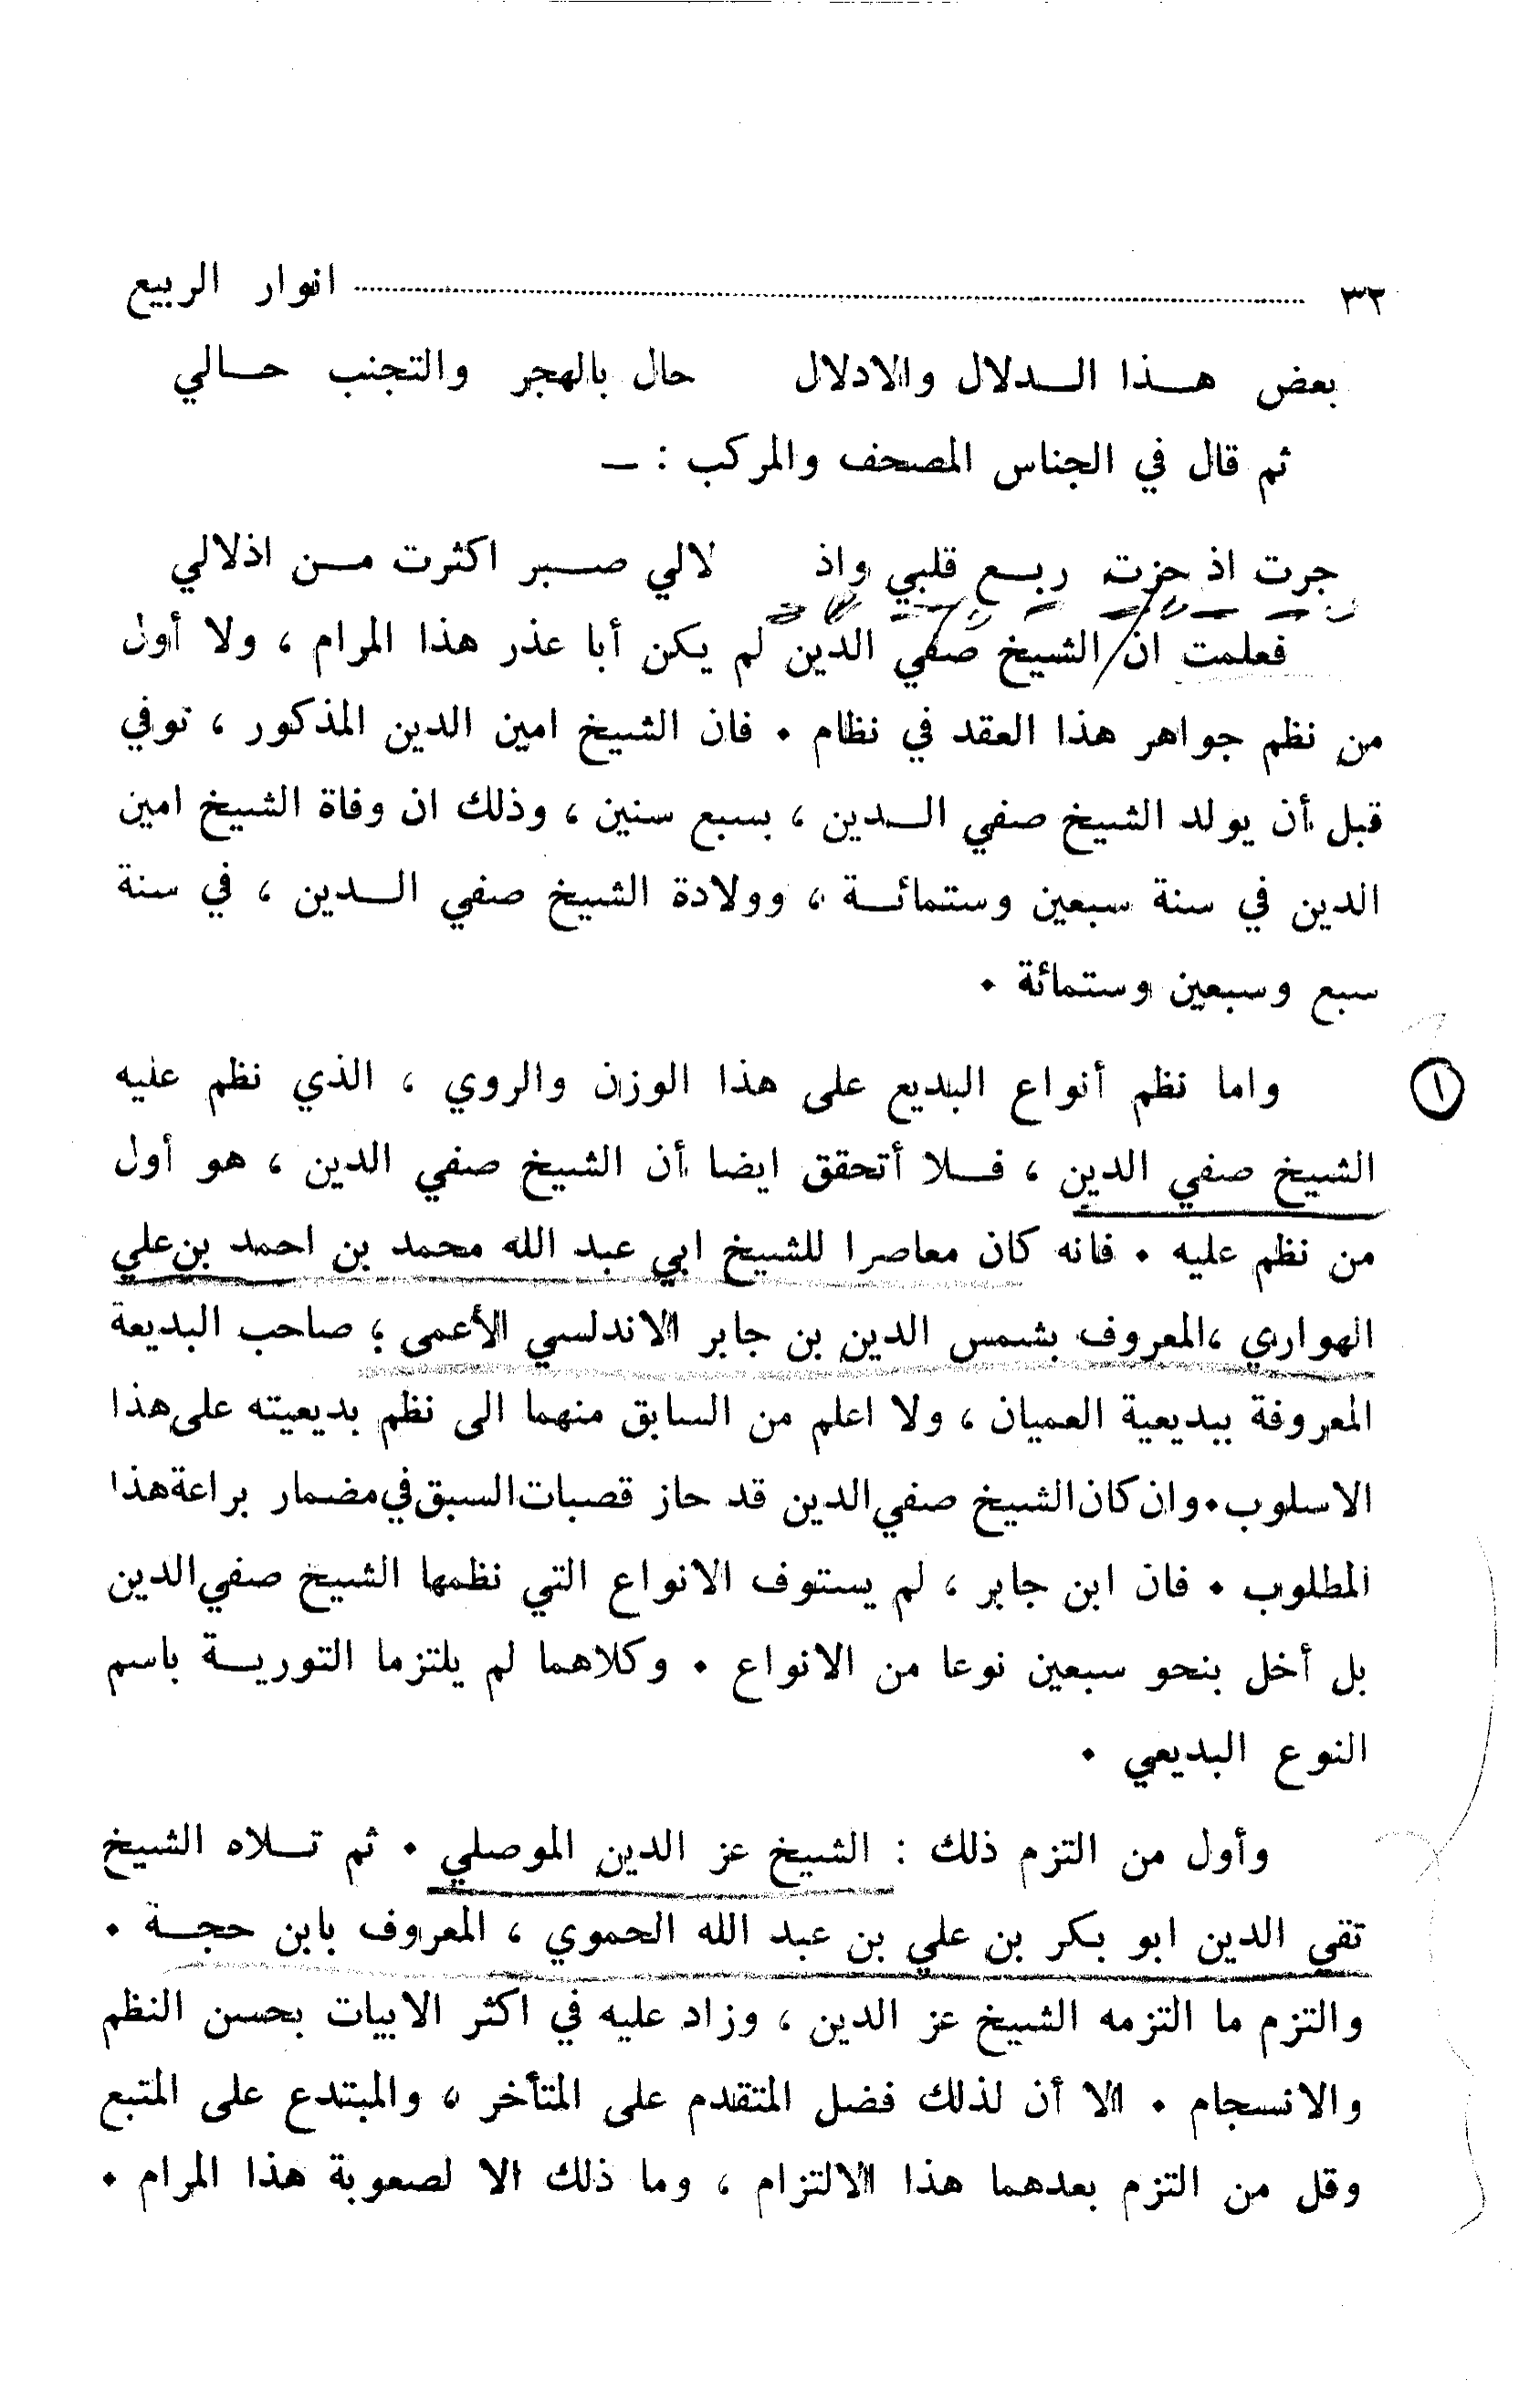 ٣٢ انوار الربيع
بعض هـذا الـدلال والادلال حال بالهجر والتجنب حـالي
ثم قال في الجناس المصحف والمركب : —
جرت اذ حزت ربـع قلبي واذ لالي صـبر اكثرت مـن اذلالي
فعلمت ان الشيخ صفي الدين لم يكن أبا عذر هذا المرام ، ولا أول
من نظم جواهر هذا العقد في نظام ٠ فان الشيخ امين الدين المذكور ، توفي
قبل أن يولد الشيخ صفي الـدين ، بسبع سنين ، وذلك ان وفاة الشيخ امين
الدين في سنة سبعين وستمائـة ، وولادة الشيخ صفي الـدين ، في سنة
سبع وسبعين وستمائة ٠
١ واما نظم أنواع البديع على هذا الوزن والروي ، الذي نظم عليه
الشيخ صفي الدين ، فـلا أتحقق ايضا أن الشيخ صفي الدين ، هو أول
من نظم عليه ٠ فانه كان معاصرا للشيخ ابي عبد الله محمد بن احمد بن علي
الهواري ، المعروف بشمس الدين بن جابر الاندلسي الأعمى ، صاحب البديعة
المعروفة ببديعية العميان ، ولا اعلم من السابق منهما الى نظم بديعيته على هذا
الاسلوب ٠ وان كان الشيخ صفي الدين قد حاز قصبات السبق في مضمار براعة هذا
المطلوب ٠ فان ابن جابر ، لم يستوف الانواع التي نظمها الشيخ صفي الدين
بل أخل بنحو سبعين نوعا من الانواع ٠ وكلاهما لم يلتزما التوريـة باسم
النوع البديعي ٠
وأول من التزم ذلك : الشيخ عز الدين الموصلي ٠ ثم تـلاه الشيخ
تقي الدين ابو بكر بن علي بن عبد الله الحموي ، المعروف بابن حجـة ٠
والتزم ما التزمه الشيخ عز الدين ، وزاد عليه في اكثر الابيات بحسن النظم
والانسجام ٠ الا أن لذلك فضل المتقدم على المتأخر ، والمبتدع على المتبع
وقل من التزم بعدهما هذا الالتزام ، وما ذلك الا لصعوبة هذا المرام ٠